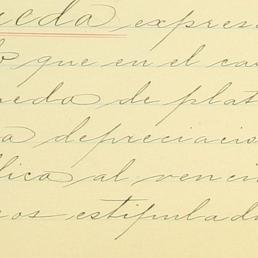 ueda expres
lo que en el cas
neda de plat
ta depreciacio
lica al venci
zos estipulad